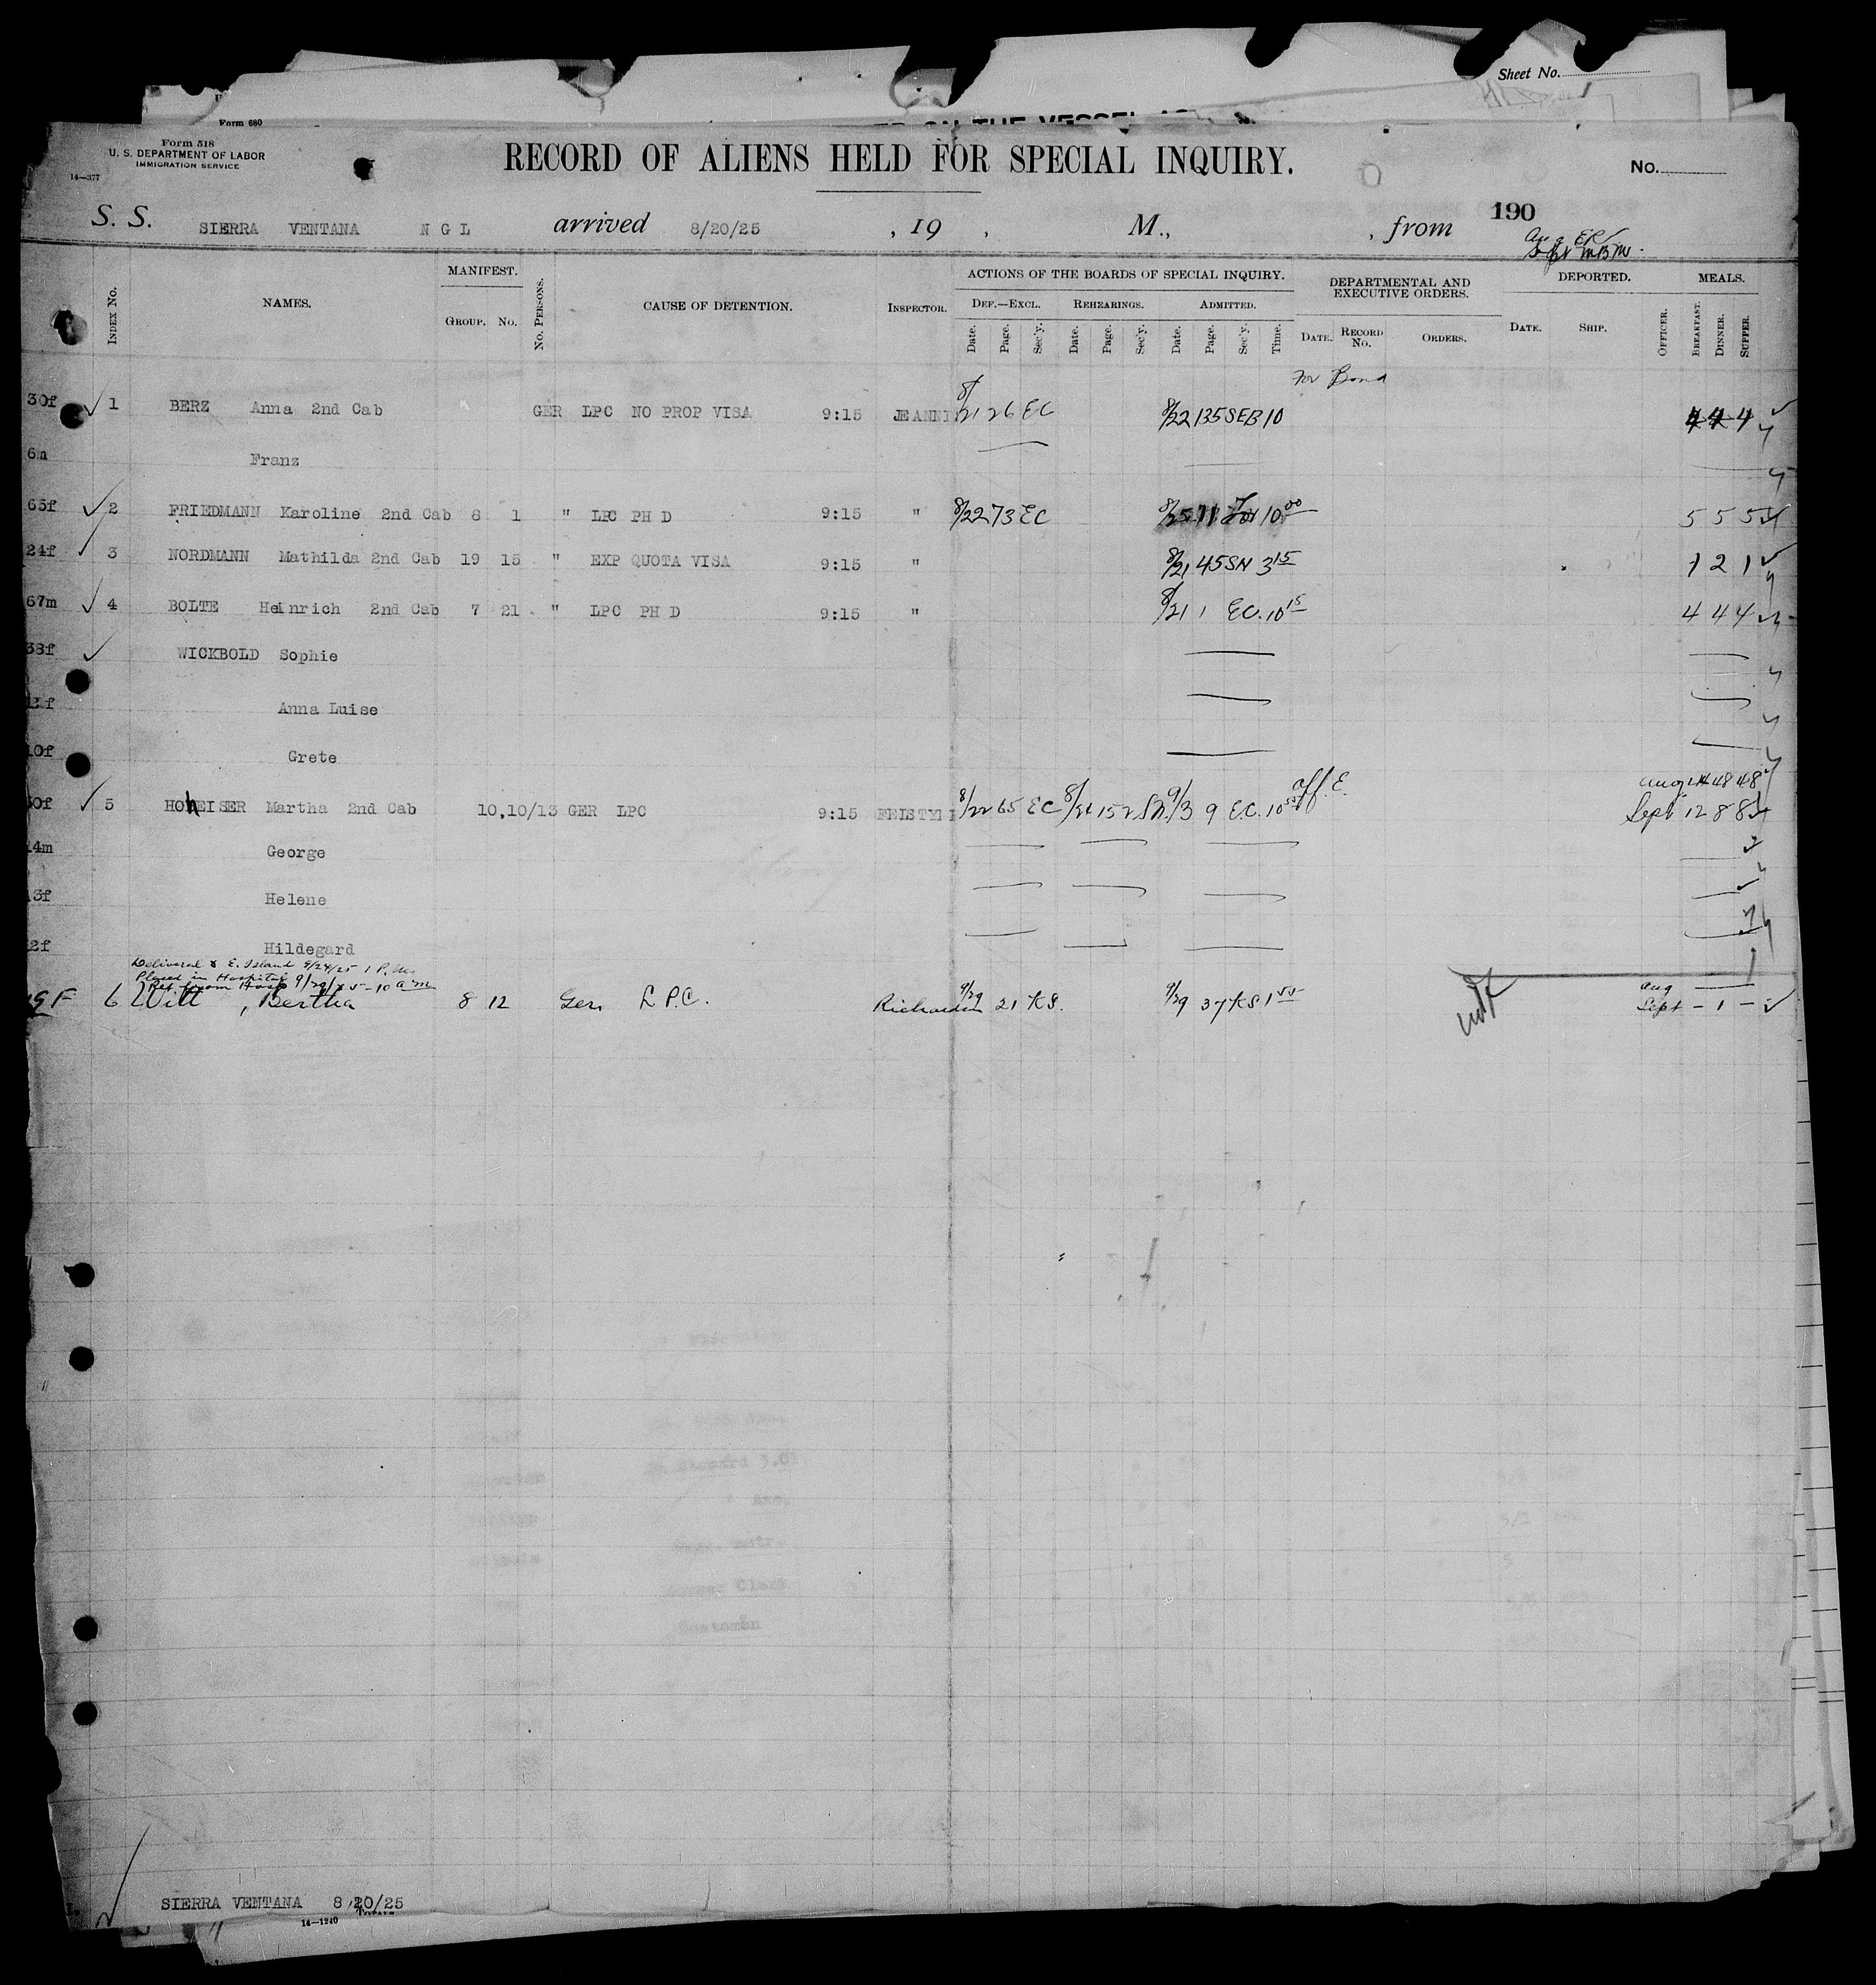 Sheet No.
Form 680
Form 518
U. S. DEPARTMENT OF LABOR
IMMIGRATION SERVICE
14—377
RECORD OF ALIENS HELD FOR SPECIAL INQUIRY.
No.
S. S. SIERRA VENTANA N G L arrived 8/20/25 , 19 , M., , from 190
Aug ER
Sept MBM.
INDEX No. NAMES. MANIFEST. GROUP. No. No. PERSONS. CAUSE OF DETENTION. INSPECTOR. ACTIONS OF THE BOARDS OF SPECIAL INQUIRY. DEPARTMENTAL AND EXECUTIVE ORDERS. DEPORTED. MEALS.
DEF.—EXCL. REHEARINGS. ADMITTED.
Date. Page. Sec'y. Date. Page. Sec'y. Date. Page. Sec'y. Time. DATE. RECORD No. ORDERS. DATE. SHIP. OFFICER. BREAKFAST. DINNER. SUPPER.
For Bond
30f 1 BERZ Anna 2nd Cab GER LPC NO PROP VISA 9:15 JEANN 8/21 26 EC 8/22 135 SEB 10 4 4 4
6m Franz
65f 2 FRIEDMANN Karoline 2nd Cab 8 1 " LPC PH D 9:15 " 8/22 73 EC 8/25 11 10 00 5 5 5
24f 3 NORDMANN Mathilda 2nd Cab 19 15 " EXP QUOTA VISA 9:15 " 8/21 45 SN 3 15 1 2 1
67m 4 BOLTE Heinrich 2nd Cab 7 21 " LPC PH D 9:15 " 8/21 1 EC. 10 15 4 4 4
38f WICKBOLD Sophie
Anna Luise
10f Grete
Aug 48 48
5 HOhEISER Martha 2nd Cab 10,10/13 GER LPC 9:15 8/22 65 EC 152 9/3 9 E.C. 10 Aff. E. Sept 12 8 8
4m George
3f Helene
2f Hildegard
Delivered E. Island 9/24/25 1 P.M.
Placed in Hospital
Ret from Hosp 9/29/25 - 10 a m
6 Witt, Bertha 8 12 Ger. L P.C. Richardson 9/29 21 KS. 9/29 37 KS 1 Aug
Sept - 1 -
SIERRA VENTANA 8/20/25
14—1240